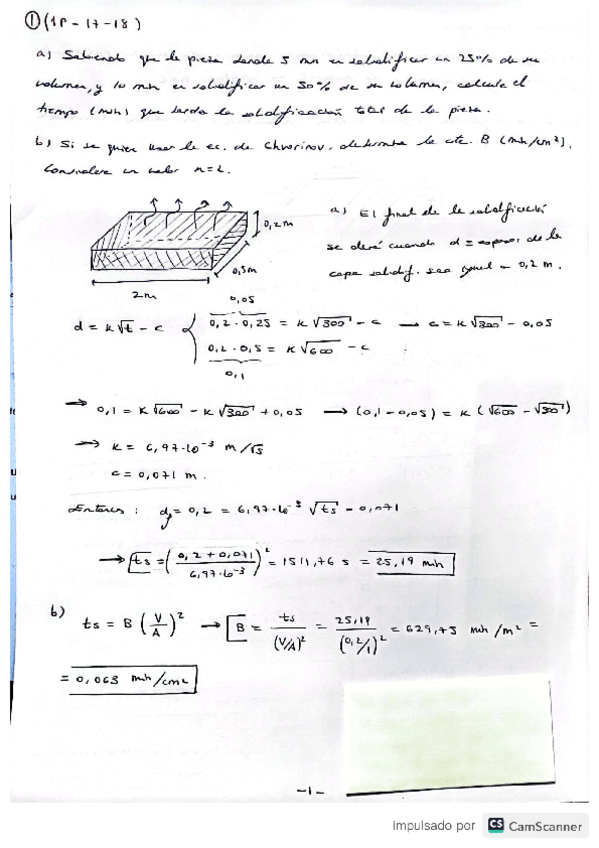 ① (1P-17-18)
a) Sabiendo que la pieza tarda 5 min en solidificar un 25% de su
volumen, y 10 min en solidificar un 50% de su volumen, calcule el
tiempo (min) que tarda la solidificación total de la pieza.
b) Si se quiere usar la ec. de Chvorinov, determine la cte. B (min/cm²).
Considere un valor n=2.
0,2 m
0,5m
2m
a) El final de la solidificación
se dará cuando d = espesor de la
capa solidif. sea igual a 0,2 m.
0,05
d = K√t - c
0,2 · 0,25 = K√300 - c → c = K√300 - 0,05
0,2 · 0,5 = K√600 - c
0,1
→ 0,1 = K√600 - K√300 + 0,05 → (0,1 - 0,05) = K (√600 - √300)
→ K = 6,97·10⁻³ m/√s
c = 0,071 m.
Entonces : = 0,2 = 6,97·10⁻³ √ts - 0,071
→ ts = (0,2 + 0,071 / 6,97·10⁻³)² = 1511,76 s = 25,19 min
b)
ts = B (V/A)² → B = ts/(V/A)² = 25,19/(0,2/1)² = 629,75 min/m² =
= 0,063 min/cm²
-1-
Impulsado por CS CamScanner